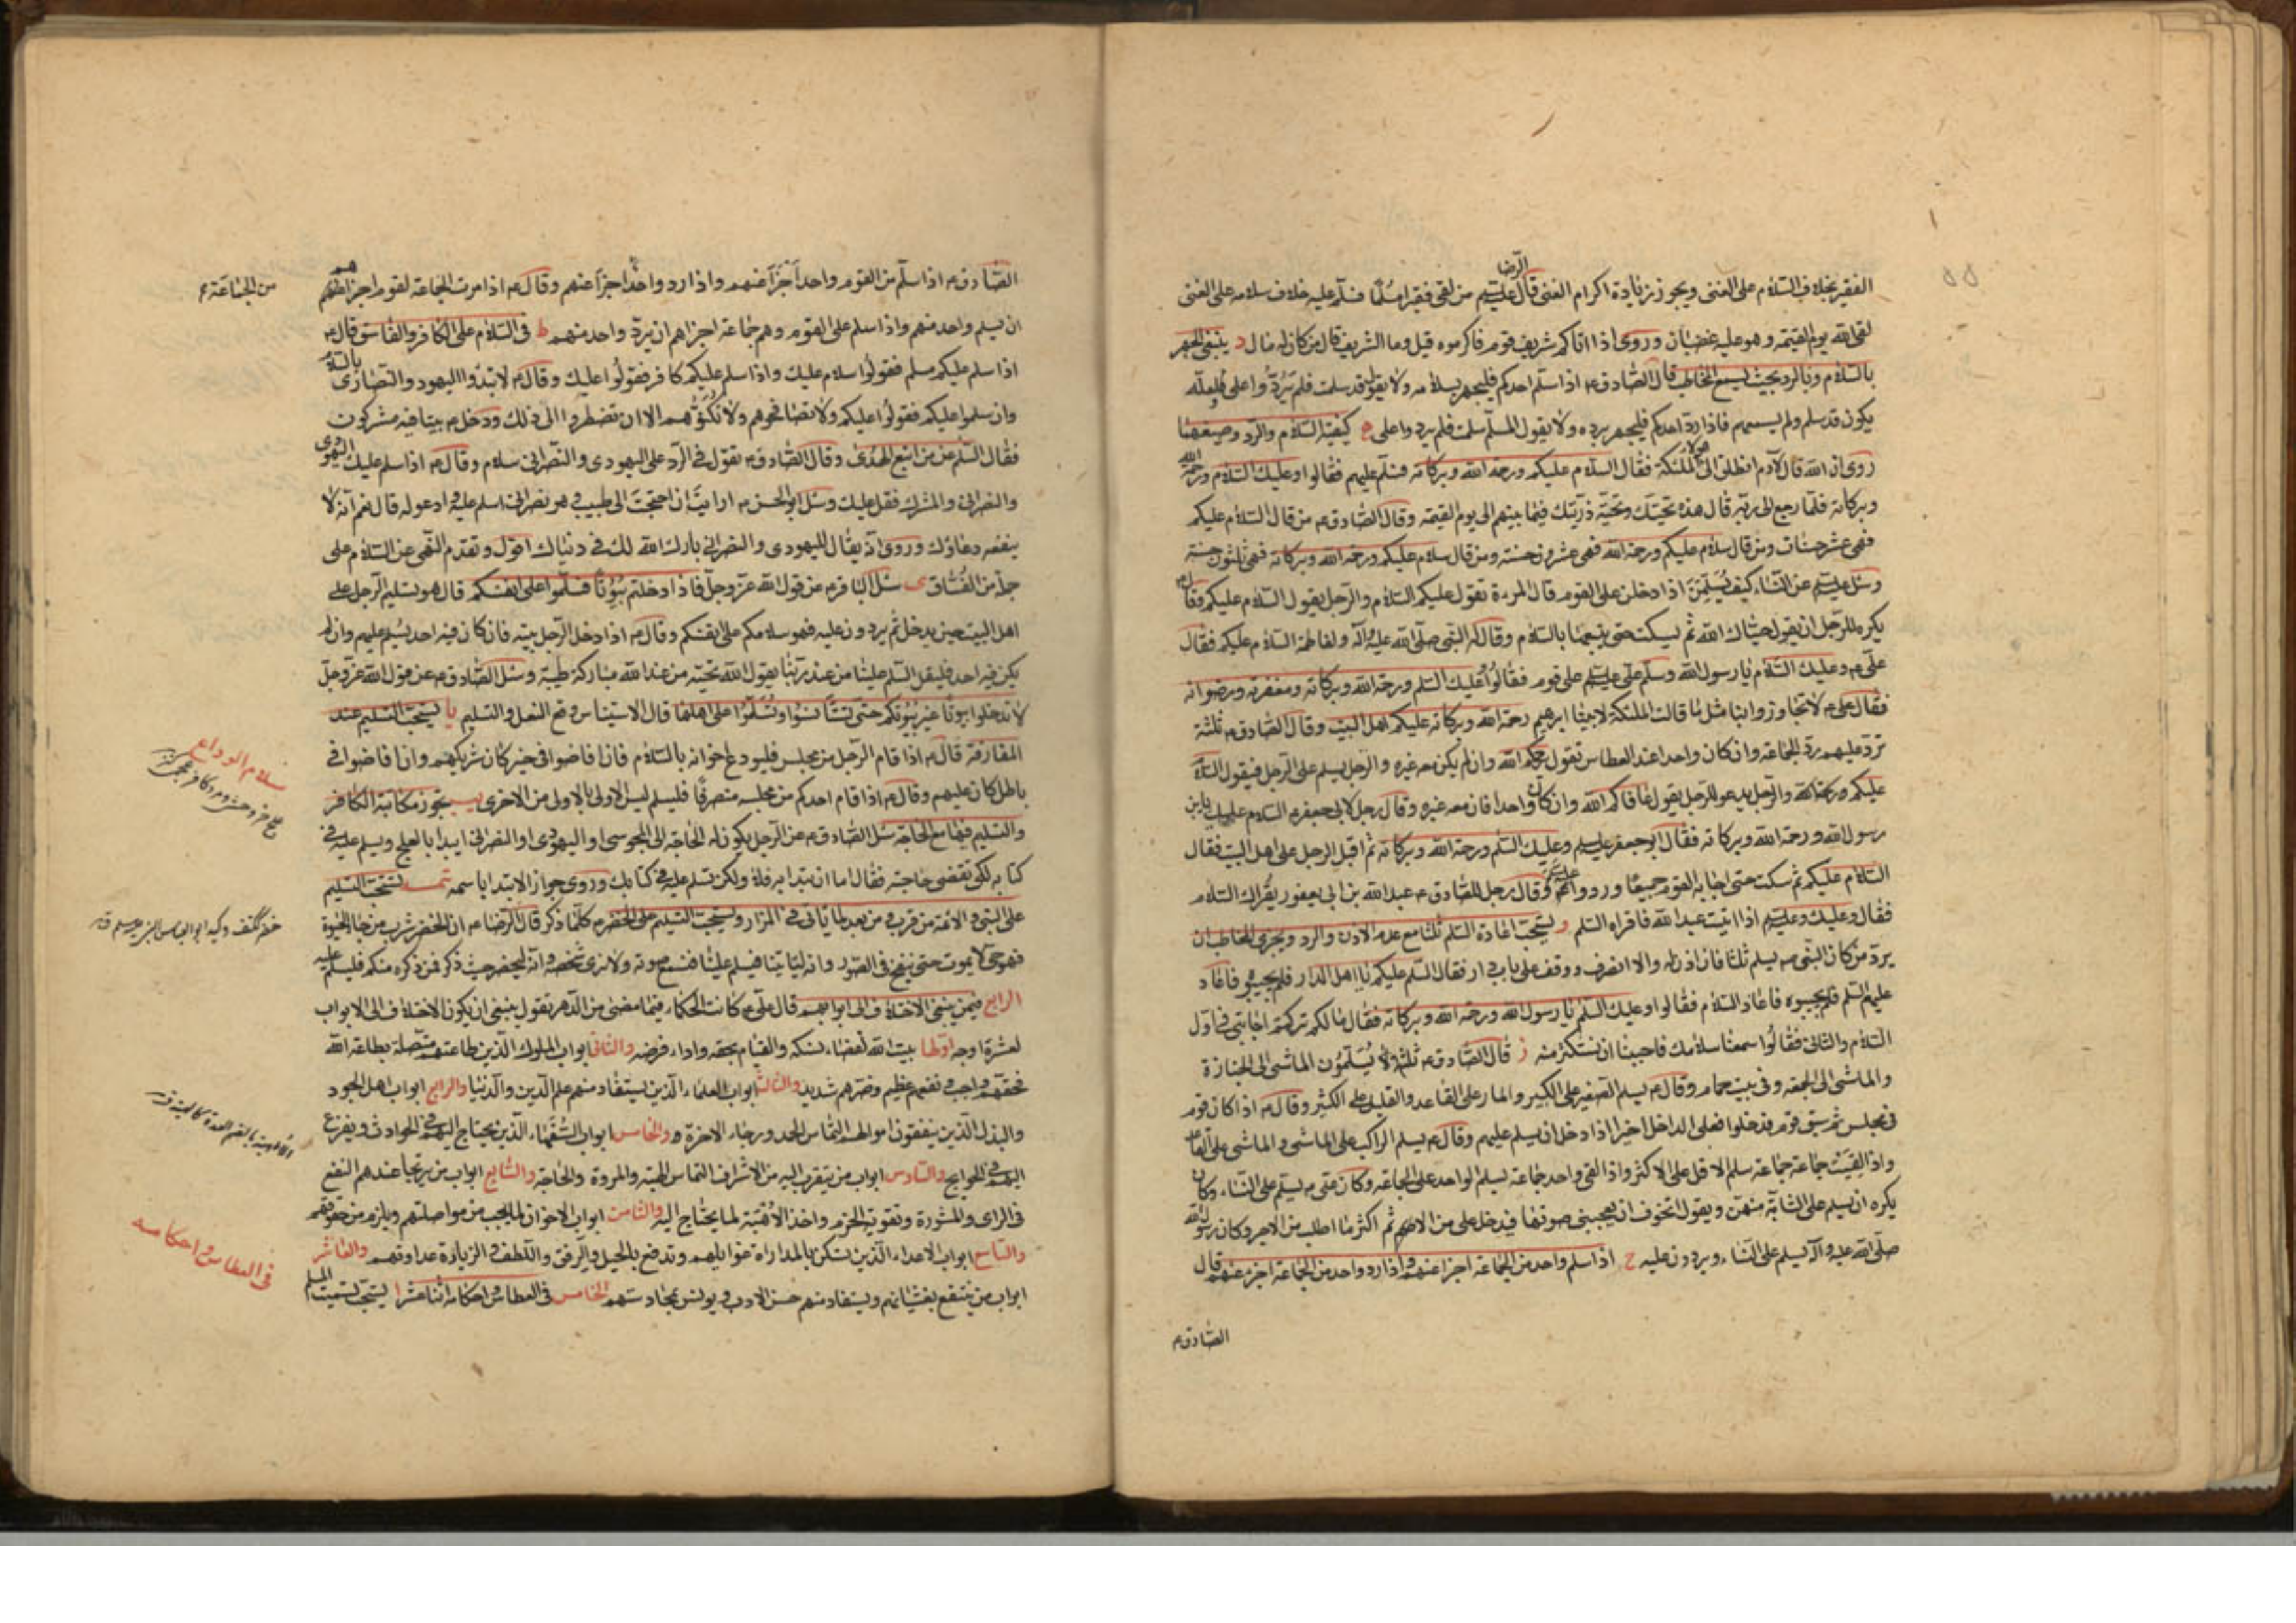 الفقير بخلاف السّلام على الغنى ويجوز زيادة اكرام الغنى قال الرّضا عليه السلم من لقى فقيرا مسلما فسلّم عليه خلاف سلامه على الغنى
لقى الله يوم القيمة وهو عليه غضبان وروى اذا اتاكم شريف قوم فاكرموه قيل وما الشريف قال من كان له مال د ينبغى الجهر
بالسّلام وبالرد بحيث يسمع المخاطب قال الصّادق ع اذا سلّم احدكم فليجهر بسلامه ولا يقول قد سلمت فلم يردّوا على فلعلّه
يكون قد سلم ولم يسمعهم فاذا ردّ احدكم فليجهر برده ولا يقول المسلّم سلمت فلم يردوا على ه كيفية السّلام والرّد وصيغهما
روى ان الله قال لآدم انطلق الى هؤلاء الملئكة فقال السلام عليكم ورحمة الله وبركاته فسلّم عليهم فقالوا وعليك السّلام ورحمة الله
وبركاته فلمّا رجع الى ربّه قال هذه تحيّتك وتحيّة ذرّيتك فيما بينهم الى يوم القيمة وقال الصّادق ع من قال السّلام عليكم
فهى عشر حسنات ومن قال سلام عليكم ورحمة الله فهى عشرون حسنة ومن قال سلام عليكم ورحمة الله وبركاته فهى ثلثون حسنة
وسئل عليه السلم عن النّساء كيف يسلّمن اذا دخلن على القوم قال المرءة تقول عليكم السّلام والرّجل يقول السّلام عليكم وقال ع
يكره للرّجل ان يقول حيّاك الله ثم يسكت حتى يتبعها بالسّلام وقال له النّبى صلّى الله عليه وآله ولفاطمة السّلام عليكم فقال
على ع وعليك السّلام يا رسول الله وسلّم على عليه السلم على قوم فقالوا عليك السّلم ورحمة الله وبركاته ومغفرته ورضوانه
فقال على ع لا تجاوزوا بنا مثل ما قالت الملئكة لابينا ابرهيم رحمة الله وبركاته عليكم اهل البيت وقال الصّادق ع ثلثة
ترد عليهم ردّ الجماعة وان كان واحدا عند العطاس تقول يرحمكم الله وان لم يكن معه غيره والرّجل يسلم على الرّجل فيقول السّلام
عليكم ورحمة الله والرّجل يدعو للرّجل يقول عافاكم الله وان كان واحدا فان معه غيره وقال رجل لابى جعفر ع السلام عليك يا بن
رسول الله ورحمة الله وبركاته فقال ابو جعفر عليه السلم وعليك السّلم ورحمة الله وبركاته ثم اقبل الرجل على اهل البيت فقال
السّلام عليكم ثم سكت حتى اجابه القوم جميعا وردوا عليه السلم وقال رجل للصّادق ع عبد الله بن ابى يعفور يقراك السّلام
فقال وعليك وعليه السلم اذا اتيت عبد الله فاقراه السّلم و يستحبّ اعادة السّلم ثلثا مع عدم الاذن والرد ويجزى المخاطب ان
يردّ من كان النّبى ص يسلم ثلثا فان اذن له والا انصرف ووقف على باب دار فقال السّلم عليكم يا اهل الدار فلم يجيبوه فاعاد
عليهم السّلم فلم يجيبوه فاعاد السّلام فقالوا وعليك السّلم يا رسول الله ورحمة الله وبركاته فقال ما لكم تركتم اجابتى فى اول
السّلام والثانى فقالوا سمعنا سلامك فاحببنا ان نستكثر منه ز قال الصّادق ع ثلثة لا يسلّمون الماشى الى الجنازة
والماشى الى الجمعة وفى بيت حمام وقال ع يسلم الصّغير على الكبير والمار على القاعد والقليل على الكثير وقال ع اذا كان قوم
فى مجلس ثم سبق قوم فدخلوا فعلى الداخل اخيرا اذا دخل ان يسلم عليهم وقال ع يسلم الراكب على الماشى والماشى على القاعد
واذا لقيت جماعة جماعة سلم الاقل على الاكثر واذا لقى واحد جماعة يسلم الواحد على الجماعة وكان على ع يسلّم على النّساء وكان
يكره ان يسلم على الشابّة منهنّ ويقول اتخوف ان يعجبنى صوتها فيدخل على من الاثم ثم اكثر مما اطلب من الاجر وكان رسول الله
صلّى الله عليه وآله يسلم على النّساء ويردون عليه ح اذا سلم واحد من الجماعة اجزا عنهم واذا رد واحد من الجماعة اجزء عنهم قال
الصّادق ع
الصّادق ع اذا سلّم من القوم واحد اجزأ عنهم واذا رد واحد اجزأ عنهم وقال ع اذا مرت الجماعة لقوم اجزاهم
من الجماعة ع
ان يسلم واحد منهم واذا سلم على القوم وهم جماعة اجزاهم ان يردّ واحد منهم ط فى السّلام على الكافر والفاسق قال ع
اذا سلم عليكم مسلم فقولوا سلام عليك واذا سلم عليكم كافر فقولوا عليك وقال ع لا تبدؤا اليهود والنّصارى بالسّلام
وان سلموا عليكم فقولوا عليكم ولا تصافحوهم ولا تكنّوهم الا ان تضطروا الى ذلك ودخل ع بيتا فيه مشركون
فقال السّلم على من اتبع الهدى وقال الصّادق ع تقول فى الرّد على اليهودى والنّصرانى سلام وقال ع اذا سلم عليك اليهودى
والنصرانى والمشرك فقل عليك وسئل ابو الحسن ع ارايت ان احتجت الى طبيب وهو نصرانى اسلم عليه وادعو له قال نعم انّه لا
ينفعه دعاؤك وروى انه يقال لليهودى والنصرانى بارك الله لك فى دنياك اقول وتقدم النّهى عن السّلام على
جملة من الفسّاق ى سئل الباقر ع عن قول الله عزّ وجلّ فاذا دخلتم بيوتا فسلّموا على انفسكم قال هو تسليم الرّجل على
اهل البيت حين يدخل ثم يردون عليه فهو سلامكم على انفسكم وقال ع اذا دخل الرّجل بيته فان كان فيه احد يسلم عليهم وان لم
يكن فيه احد فليقل السّلم علينا من عند ربّنا يقول الله تحيّة من عند الله مباركة طيّبة وسئل الصّادق ع عن قول الله عزّ وجلّ
لا تدخلوا بيوتا غير بيوتكم حتى تستأنسوا وتسلّموا على اهلها قال الاستيناس وقع النعل والتسليم يا يستحبّ التسليم عند
المفارقة قال ع اذا قام الرّجل من مجلس فليودع اخوانه بالسّلام فان افاضوا فى خير كان شريكهم وان افاضوا فى
سلام الوداع
باطل كان عليهم وقال ع اذا قام احدكم من مجلسه منصرفا فليسلم ليس الاولى بالاولى من الاخرى يب يجوز مكاتبة الكافر
والتسليم فيها مع الحاجة سئل الصّادق ع عن الرّجل يكون له الحاجة الى المجوسى او اليهودى او النصرانى ايبدا بالعلج ويسلم عليه فى
كتابه لكى تقضى حاجته فقال اما ان تبدا به فلا ولكن تسلم عليه فى كتابك وروى جواز الابتدا باسمه تتمة يستحبّ التسليم
على النّبى والائمة من قرب ومن بعد لما ياتى فى المزار ويستحبّ التسليم على الخضر ع كلّما ذكر قال الرّضا ع ان الخضر شرب من ماء الحيوة
فهو حىّ لا يموت حتى ينفخ فى الصّور وانه لياتينا فيسلم علينا فنسمع صوته ولا نرى شخصه وانّه ليحضر حيث ذكر فمن ذكره منكم فليسلم عليه
الرابع فيمن ينبغى الاختلاف الى ابوابهم قال على ع كانت الحكماء فيما مضى من الدّهر يقول ينبغى ان يكون الاختلاف الى الابواب
لعشرة اوجه اوّلها بيت الله لقضاء نسكه والقيام بحقه واداء فرضه والثانى ابواب الملوك الذين طاعتهم متّصلة بطاعة الله
فحقّهم واجب ونفعهم عظيم وضرهم شديد والثالث ابواب العلماء الّذين يستفاد منهم علم الدّين والدّنيا والرابع ابواب اهل الجود
والبذل الّذين ينفقون اموالهم التماس الحمد ورجاء الاخرة والخامس ابواب السّفهاء الّذين يحتاج اليهم فى الحوادث ويفزع
اليهم فى الحوايج والسّادس ابواب من يتقرب اليه من الاشراف التماس الهبة والمروة والحاجة والسّابع ابواب من يرتجا عندهم النّفع
فى الراى والمشورة وتقوية الحزم واخذ الاهبة لما يحتاج اليه والثامن ابواب الاخوان لما يجب من مواصلتهم ويلزم من حقوقهم
والتاسع ابواب الاعداء الّذين تسكن بالمداراة غوايلهم وتدفع بالحيل والرّفق واللّطف والزيارة عداوتهم والعاشر
فى العطاس واحكامه
ابواب من ينتفع بغشيانهم ويستفاد منهم حسن الادب ويونس بمحادثتهم الخامس فى العطاس واحكامه اثنا عشر ا يستحبّ تسميت المسلم